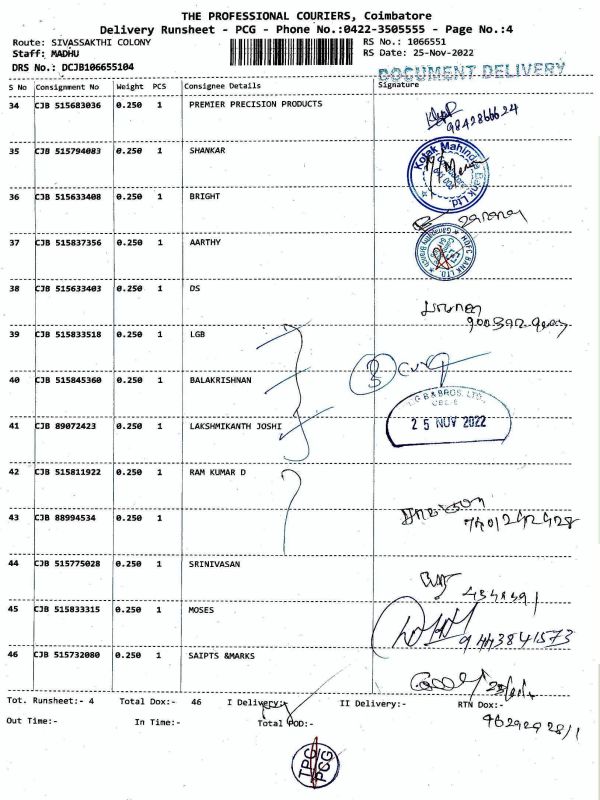 THE PROFESSIONAL COURIERS, Coimbatore
Delivery Runsheet - PCG - Phone No.:0422-3505555 - Page No.:4
Route: SIVASSAKTHI COLONY RS No.: 1066551
Staff: MADHU RS Date: 25-Nov-2022
DRS No.: DCJB106655104 DOCUMENT DELIVERY
S No Consignment No Weight PCS Consignee Details Signature
34 CJB 515683036 0.250 1 PREMIER PRECISION PRODUCTS
9842866624
35 CJB 515794083 0.250 1 SHANKAR
Kotak Mahindra Bank Ltd.
36 CJB 515633408 0.250 1 BRIGHT
37 CJB 515837356 0.250 1 AARTHY
HDFC BANK LTD.
38 CJB 515633403 0.250 1 DS
39 CJB 515833518 0.250 1 LGB
40 CJB 515845360 0.250 1 BALAKRISHNAN
L.G.B & BROS. LTD.,
41 CJB 89072423 0.250 1 LAKSHMIKANTH JOSHI
25 NOV 2022
42 CJB 515811922 0.250 1 RAM KUMAR D
43 CJB 88994534 0.250 1
44 CJB 515775028 0.250 1 SRINIVASAN
45 CJB 515833315 0.250 1 MOSES
9443841573
46 CJB 515732080 0.250 1 SAIPTS &MARKS
Tot. Runsheet:- 4 Total Dox:- 46 I Delivery:- II Delivery:- RTN Dox:-
Out Time:- In Time:- Total POD:-
TPC
PCG